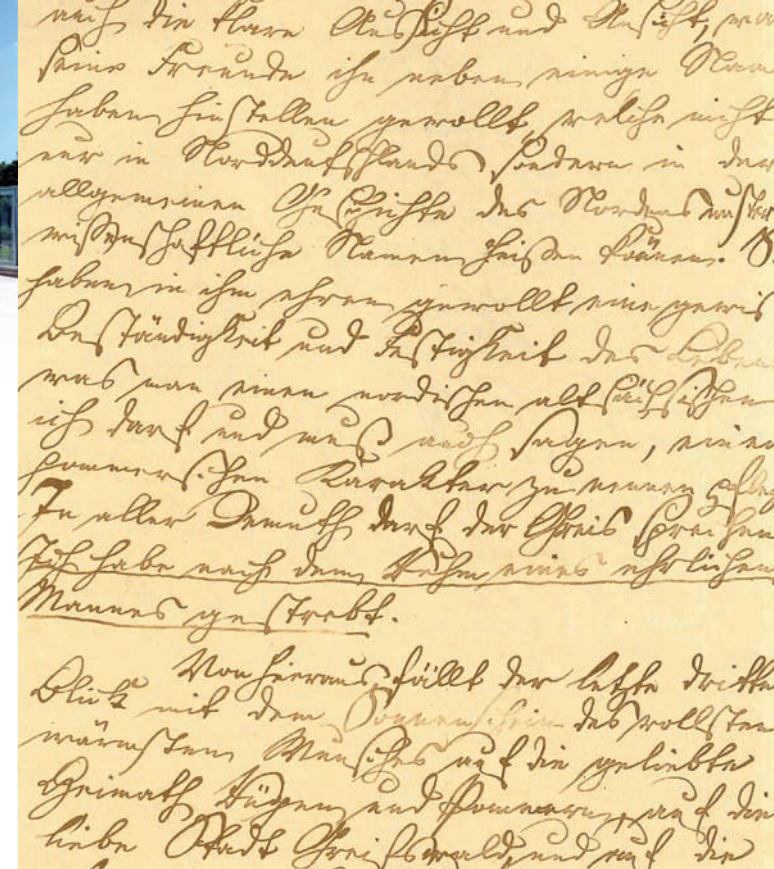 auch die klare Aussicht und Ansicht, wa
seine Freunde ihn neben einige Nam
haben hinstellen gewollt welche nicht
nur in Norddeutschlands sondern in der
allgemeinen Geschichte des Nordens
wissenschaftliche Namen heißen können.
haben in ihm ehren gewollt eine gewis
Beständigkeit und Festigkeit des Leben
was man einen nordischen altsächsischen
ich darf und muß auch sagen, einen
pommerschen Karakter zu nennen pfleg
In aller Demuth darf der Greis sprechen
Ich habe nach dem Ruhm eines ehrlichen
Mannes gestrebt.
Von hieraus fällt der letzte dritte
Blick mit dem Sonnenschein des vollsten
wärmsten Wunsches auf die geliebte
Heimath Rügen und Pommern, auf die
liebe Stadt Greifswald, und auf die